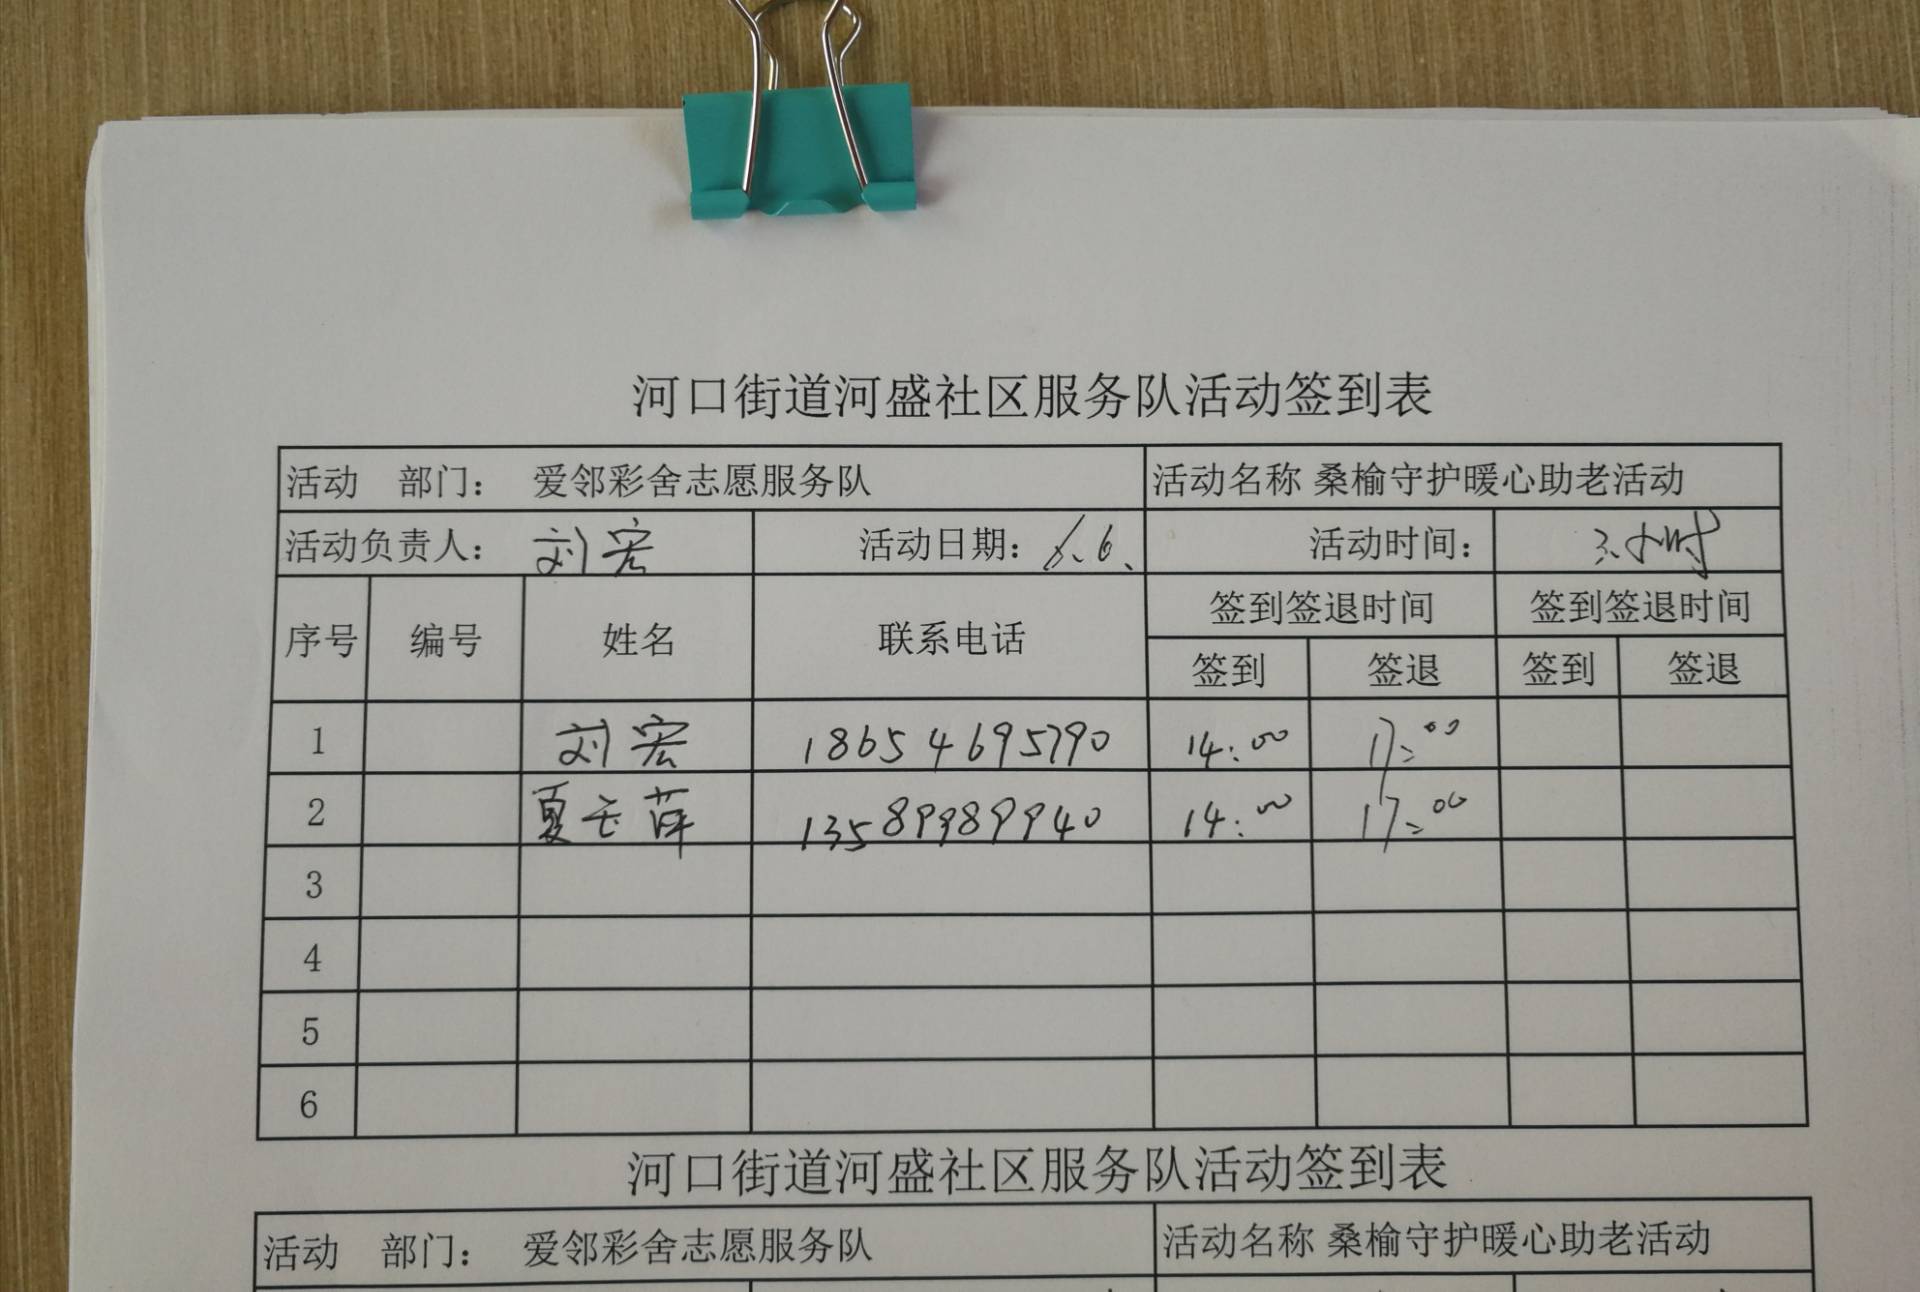 河口街道河盛社区服务队活动签到表
活动 部门： 爱邻彩舍志愿服务队 活动名称 桑榆守护暖心助老活动
活动负责人： 刘宏 活动日期：6.6. 活动时间： 3小时
序号 编号 姓名 联系电话 签到签退时间 签到签退时间
签到 签退 签到 签退
1 刘宏 18654695790 14:00 17:00
2 夏玉萍 13589989940 14:00 17:00
3
4
5
6
河口街道河盛社区服务队活动签到表
活动 部门： 爱邻彩舍志愿服务队 活动名称 桑榆守护暖心助老活动